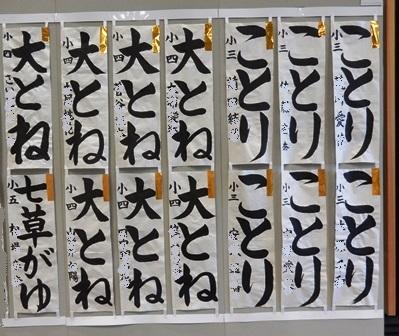 ことり
小三
ことり
小三
ことり
小三
大とね
小四
大とね
小四
大とね
小四
大とね
小四
ことり
小三
ことり
小三
ことり
小三
大とね
小四
大とね
小四
大とね
小四
七草がゆ
小五